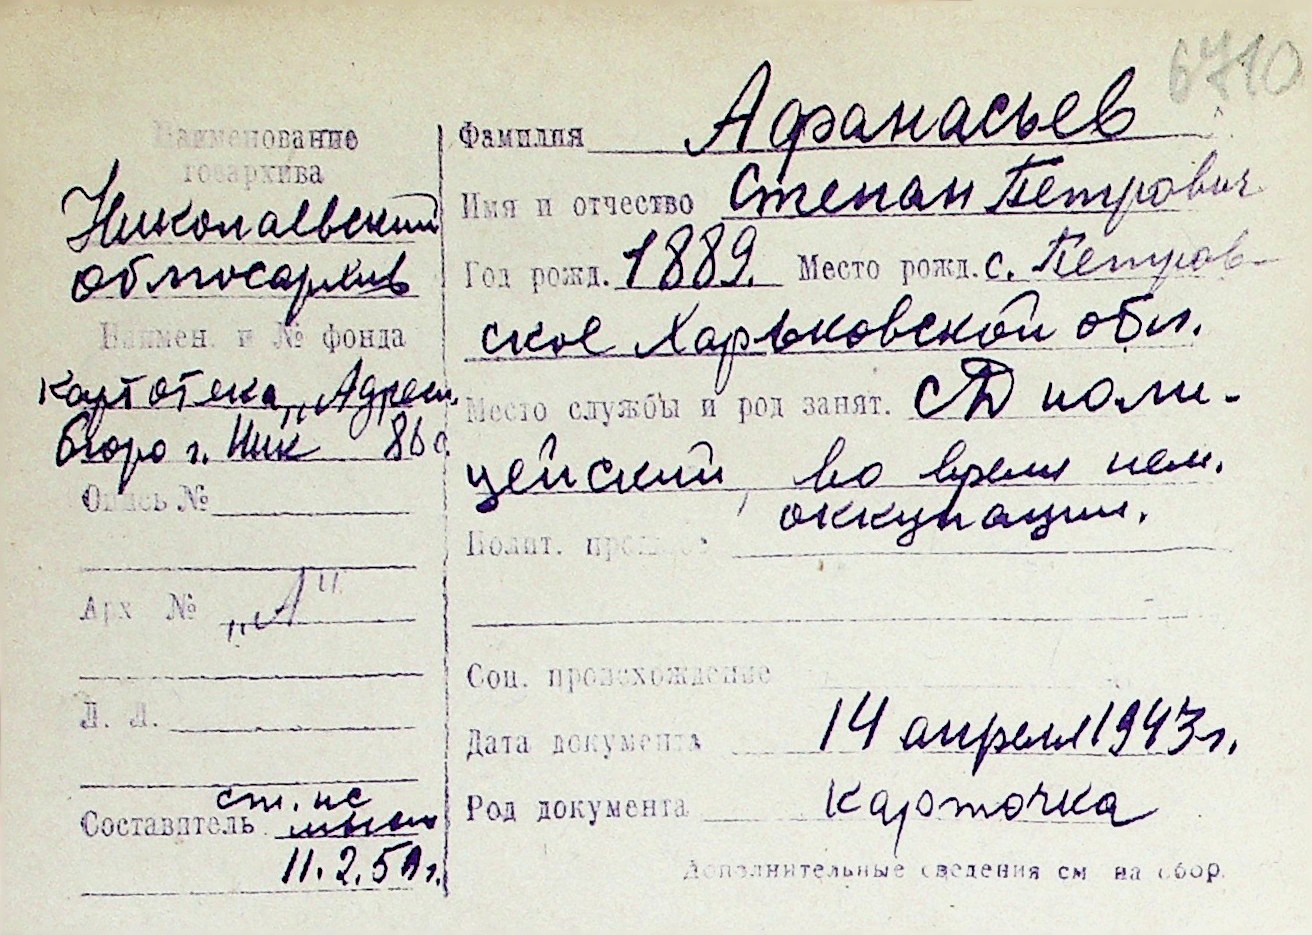 6710
Наименование
госархива
Николаевский
облгосархив
Наимен. и № фонда
картотека „Адресн.
бюро г. Ник
Опись №
Арх №  „А"
Л. Л.
Составитель ст. нс
11.2.50 г.
Фамилия Афанасьев
Имя и отчество Степан Петрович
Год рожд. 1889. Место рожд. с. Петров-
ское Харьковской обл.
Место службы и род занят. СД поли-
цейский, во время нем.
оккупации.
Полит. прошлое
Соц. происхождение
Дата документа 14 апреля 1943 г.
Род документа карточка
Дополнительные сведения см на обор.